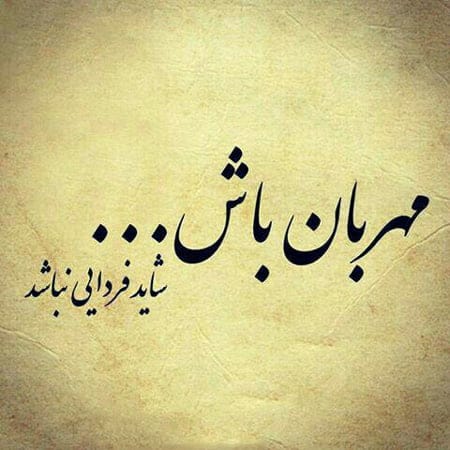 مهربان باش...
شاید فردایی نباشد